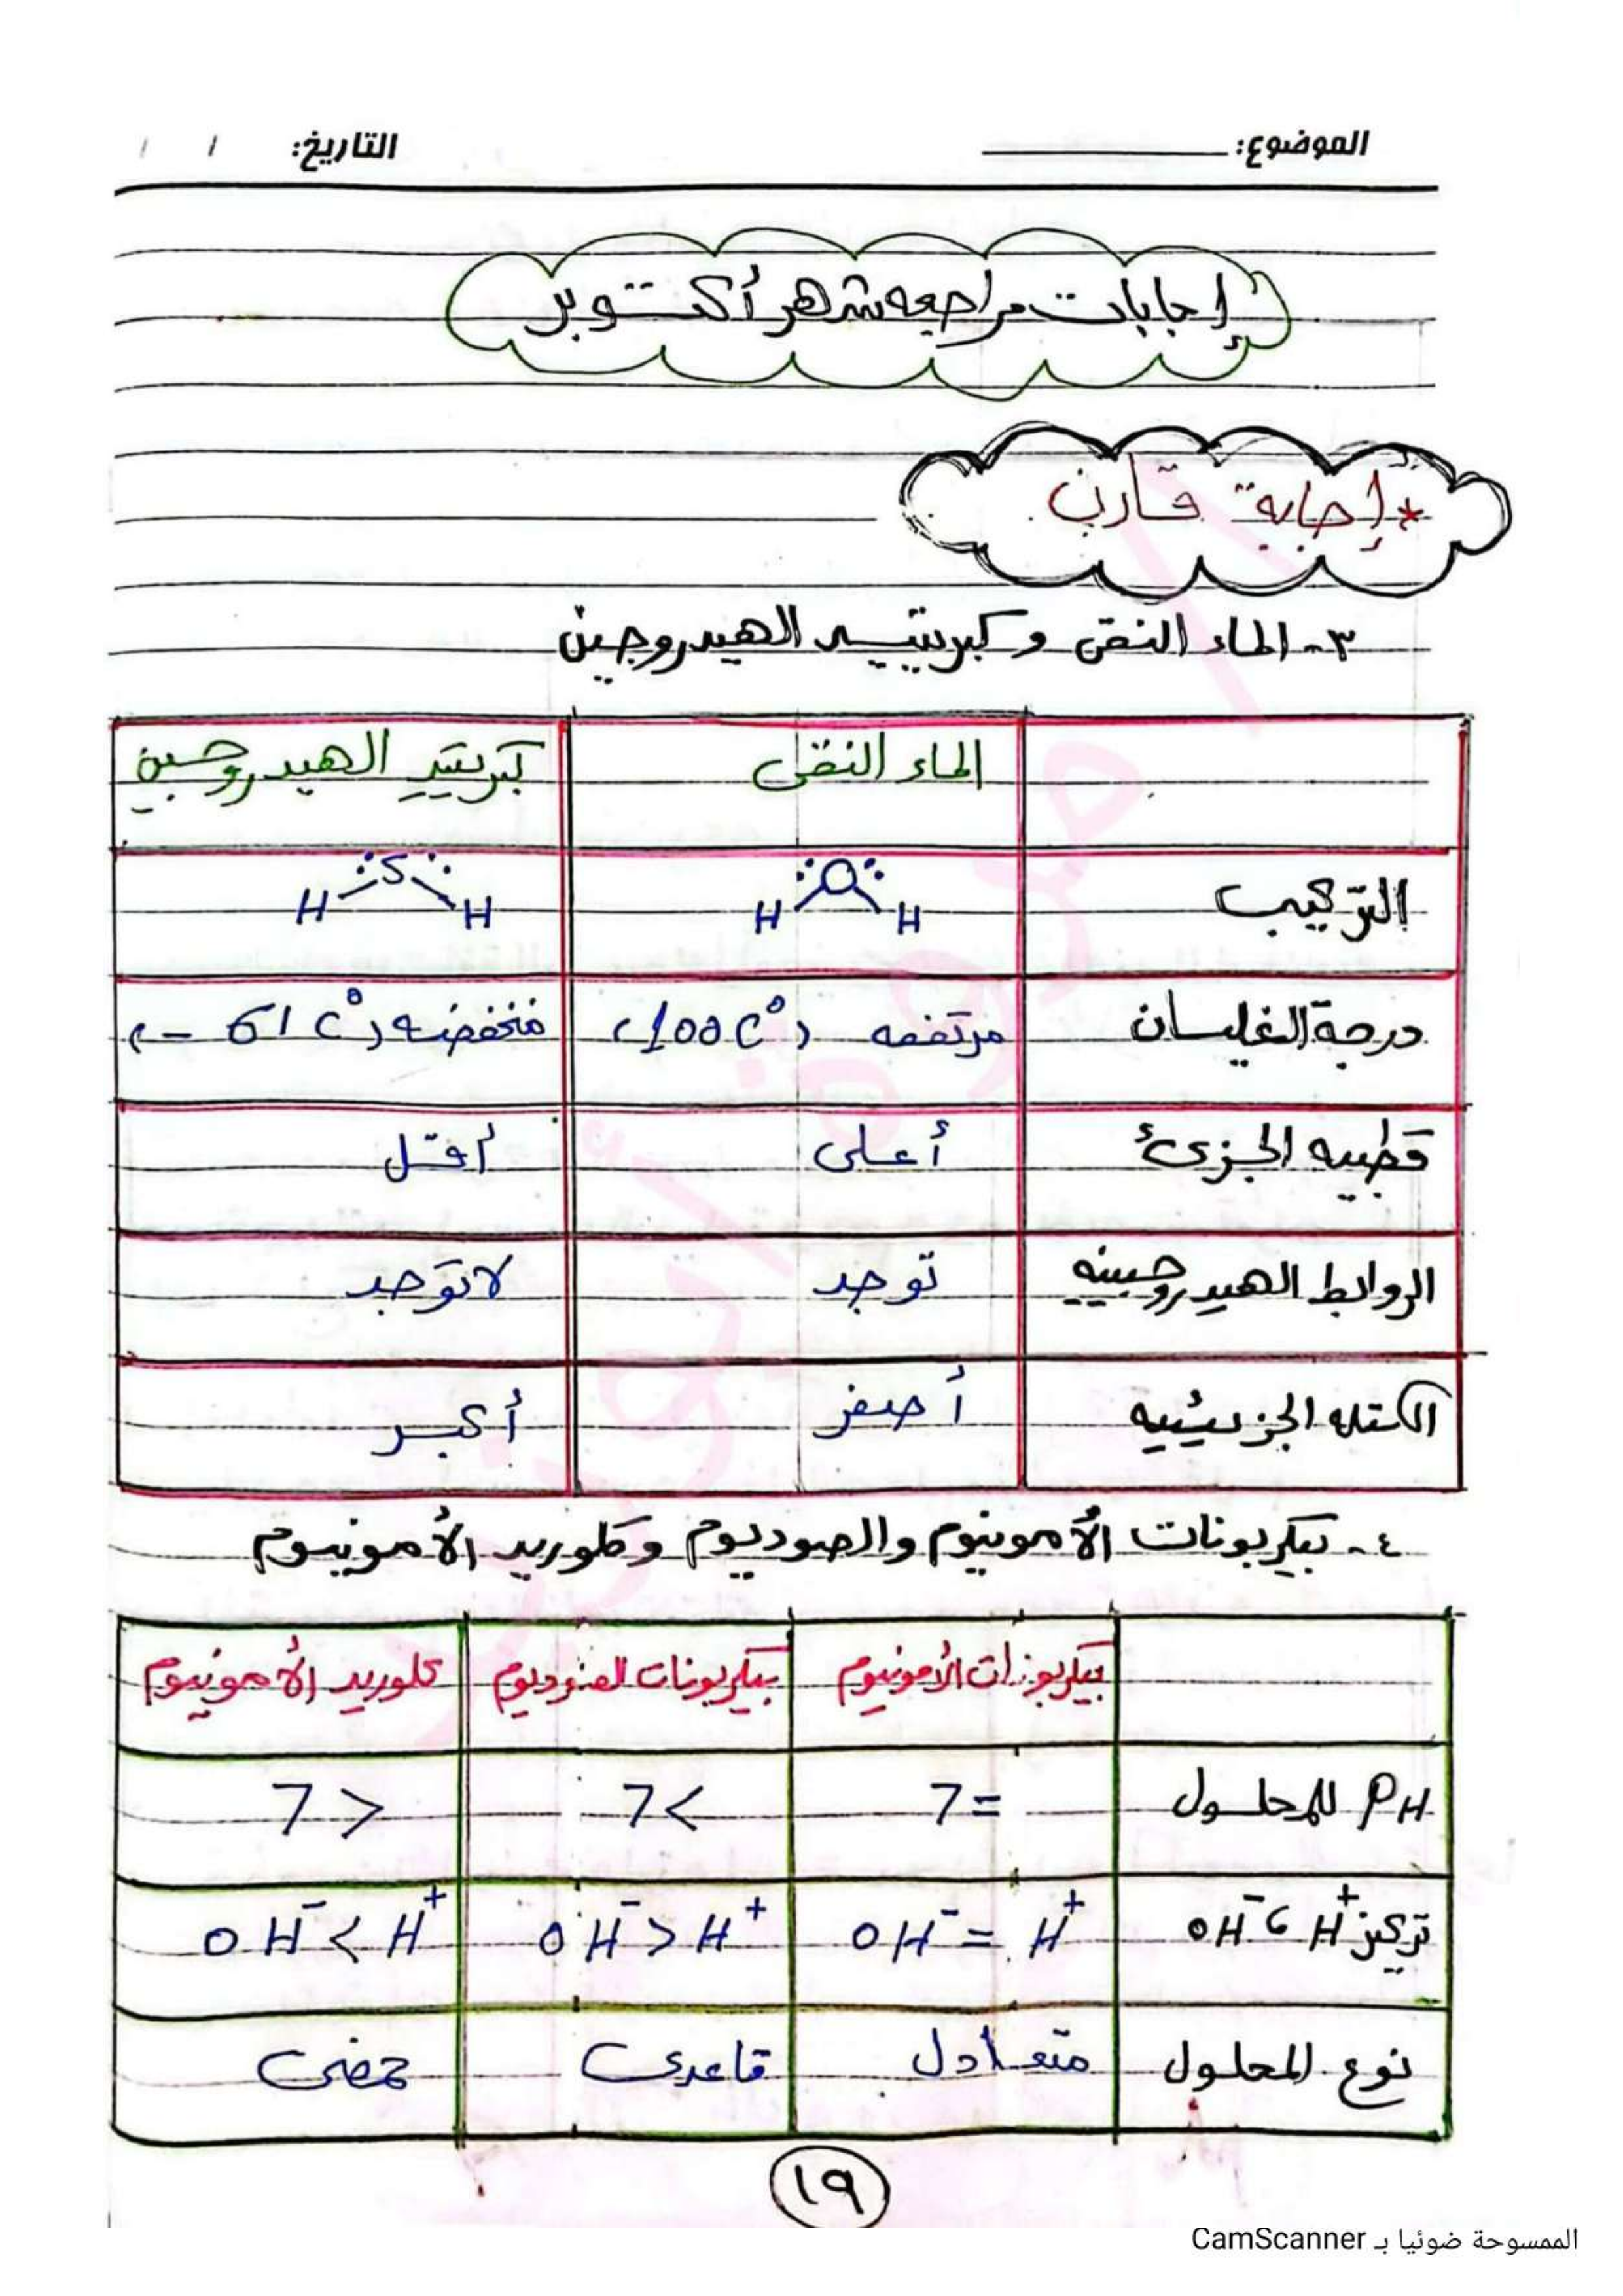 الموضوع: التاريخ: / /
إجابات مراجعه شهر أكتوبر
* إجابة قارن
٣- الماء النقى وكبريتيد الهيدروجين
الماء النقى كبريتيد الهيدروجين
التركيب H O H H S H
درجة الغليان مرتفعه (100C°) منخفضه (-61C°)
قطبيه الجزئ أعلى أقل
الروابط الهيدروجينيه توجد لاتوجد
الكتله الجزيئيه أصغر أكبر
٤- بيكربونات الأمونيوم والصوديوم وكلوريد الأمونيوم
بيكربونات الأمونيوم بيكربونات الصوديوم كلوريد الأمونيوم
PH للمحلول 7= 7< 7>
تركيز H⁺ ، OH⁻ OH⁻ = H⁺ OH⁻ > H⁺ OH⁻ < H⁺
نوع المحلول متعادل قاعدى حمضى
١٩
الممسوحة ضوئيا بـ CamScanner